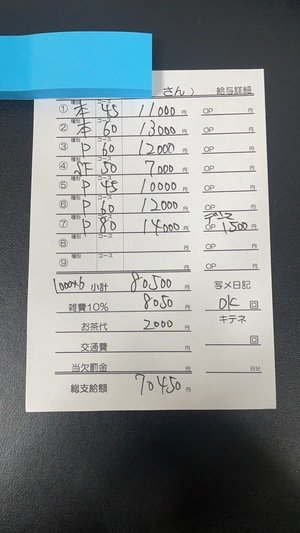 さん） 給与詳細
種別 コース
① 本 45 11000円 OP 円
種別 コース
② 本 60 13000円 OP 円
種別 コース
③ P 60 12000円 OP 円
種別 コース
④ 50 7000円 OP 円
種別 コース
⑤ P 45 10000円 OP 円
種別 コース
⑥ P 60 12000円 OP 円
種別 コース
⑦ P 80 14000円 OP 1500円
種別 コース
⑧ 円 OP 円
種別 コース
⑨ 円 OP 円
1000×6 小計 80500円 写メ日記
雑費10% 8050円 OK 回
お茶代 2000円 キテネ
交通費 円 回
当欠罰金 円 日分
総支給額 70450円